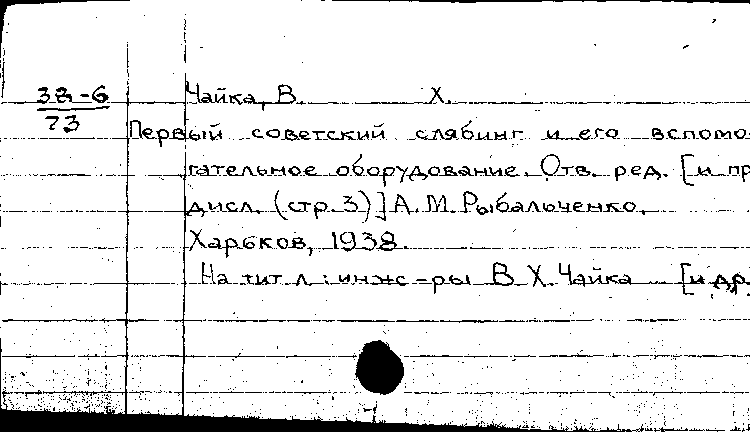 38-6
73
Чайка, В. Х.
Первый советский слябинг и его вспомо-
гательное оборудование. Отв. ред. [и пр
дисл. (стр. 3)] А. М. Рыбальченко.
Харьков, 1938.
На тит л: инж-ры В. Х. Чайка [и др.